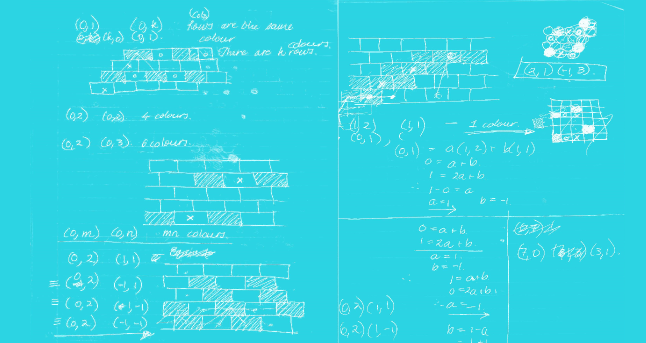 (0,1) (0,k) Rows are the same
(k,0) (0,1). colour
There are k rows.
colours.
(0,2) (0,2) 4 colours.
(0,2) (0,3) 6 colours.
(0,m) (0,n) mn colours.
(0,2) (1,1)
≡ (0,2) (-1,1)
≡ (0,2) (1,-1)
≡ (0,2) (-1,-1)
(2,1) (-1,3).
(1,2) (1,1) — 1 colour
(0,1),
(0,1) = a(1,2) + b(1,1)
0 = a+b
1 = 2a+b
∴ 1-0 = a
a=1 b=-1
0 = a+b
1 = 2a+b
a=1
b=-1
∴ 1=a+b
0=2a+b
∴ a=-1
(0,2)(1,1)
(0,2)(1,-1)
(7,0) (3,1).